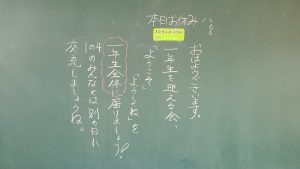 本日お休み
おはようございます。
一年生を迎える会、
「ようこそ」
「よろしくね」を
一年生全体に届けましょう!!
1の4のみんなとは別の日に
交流しましょうね。